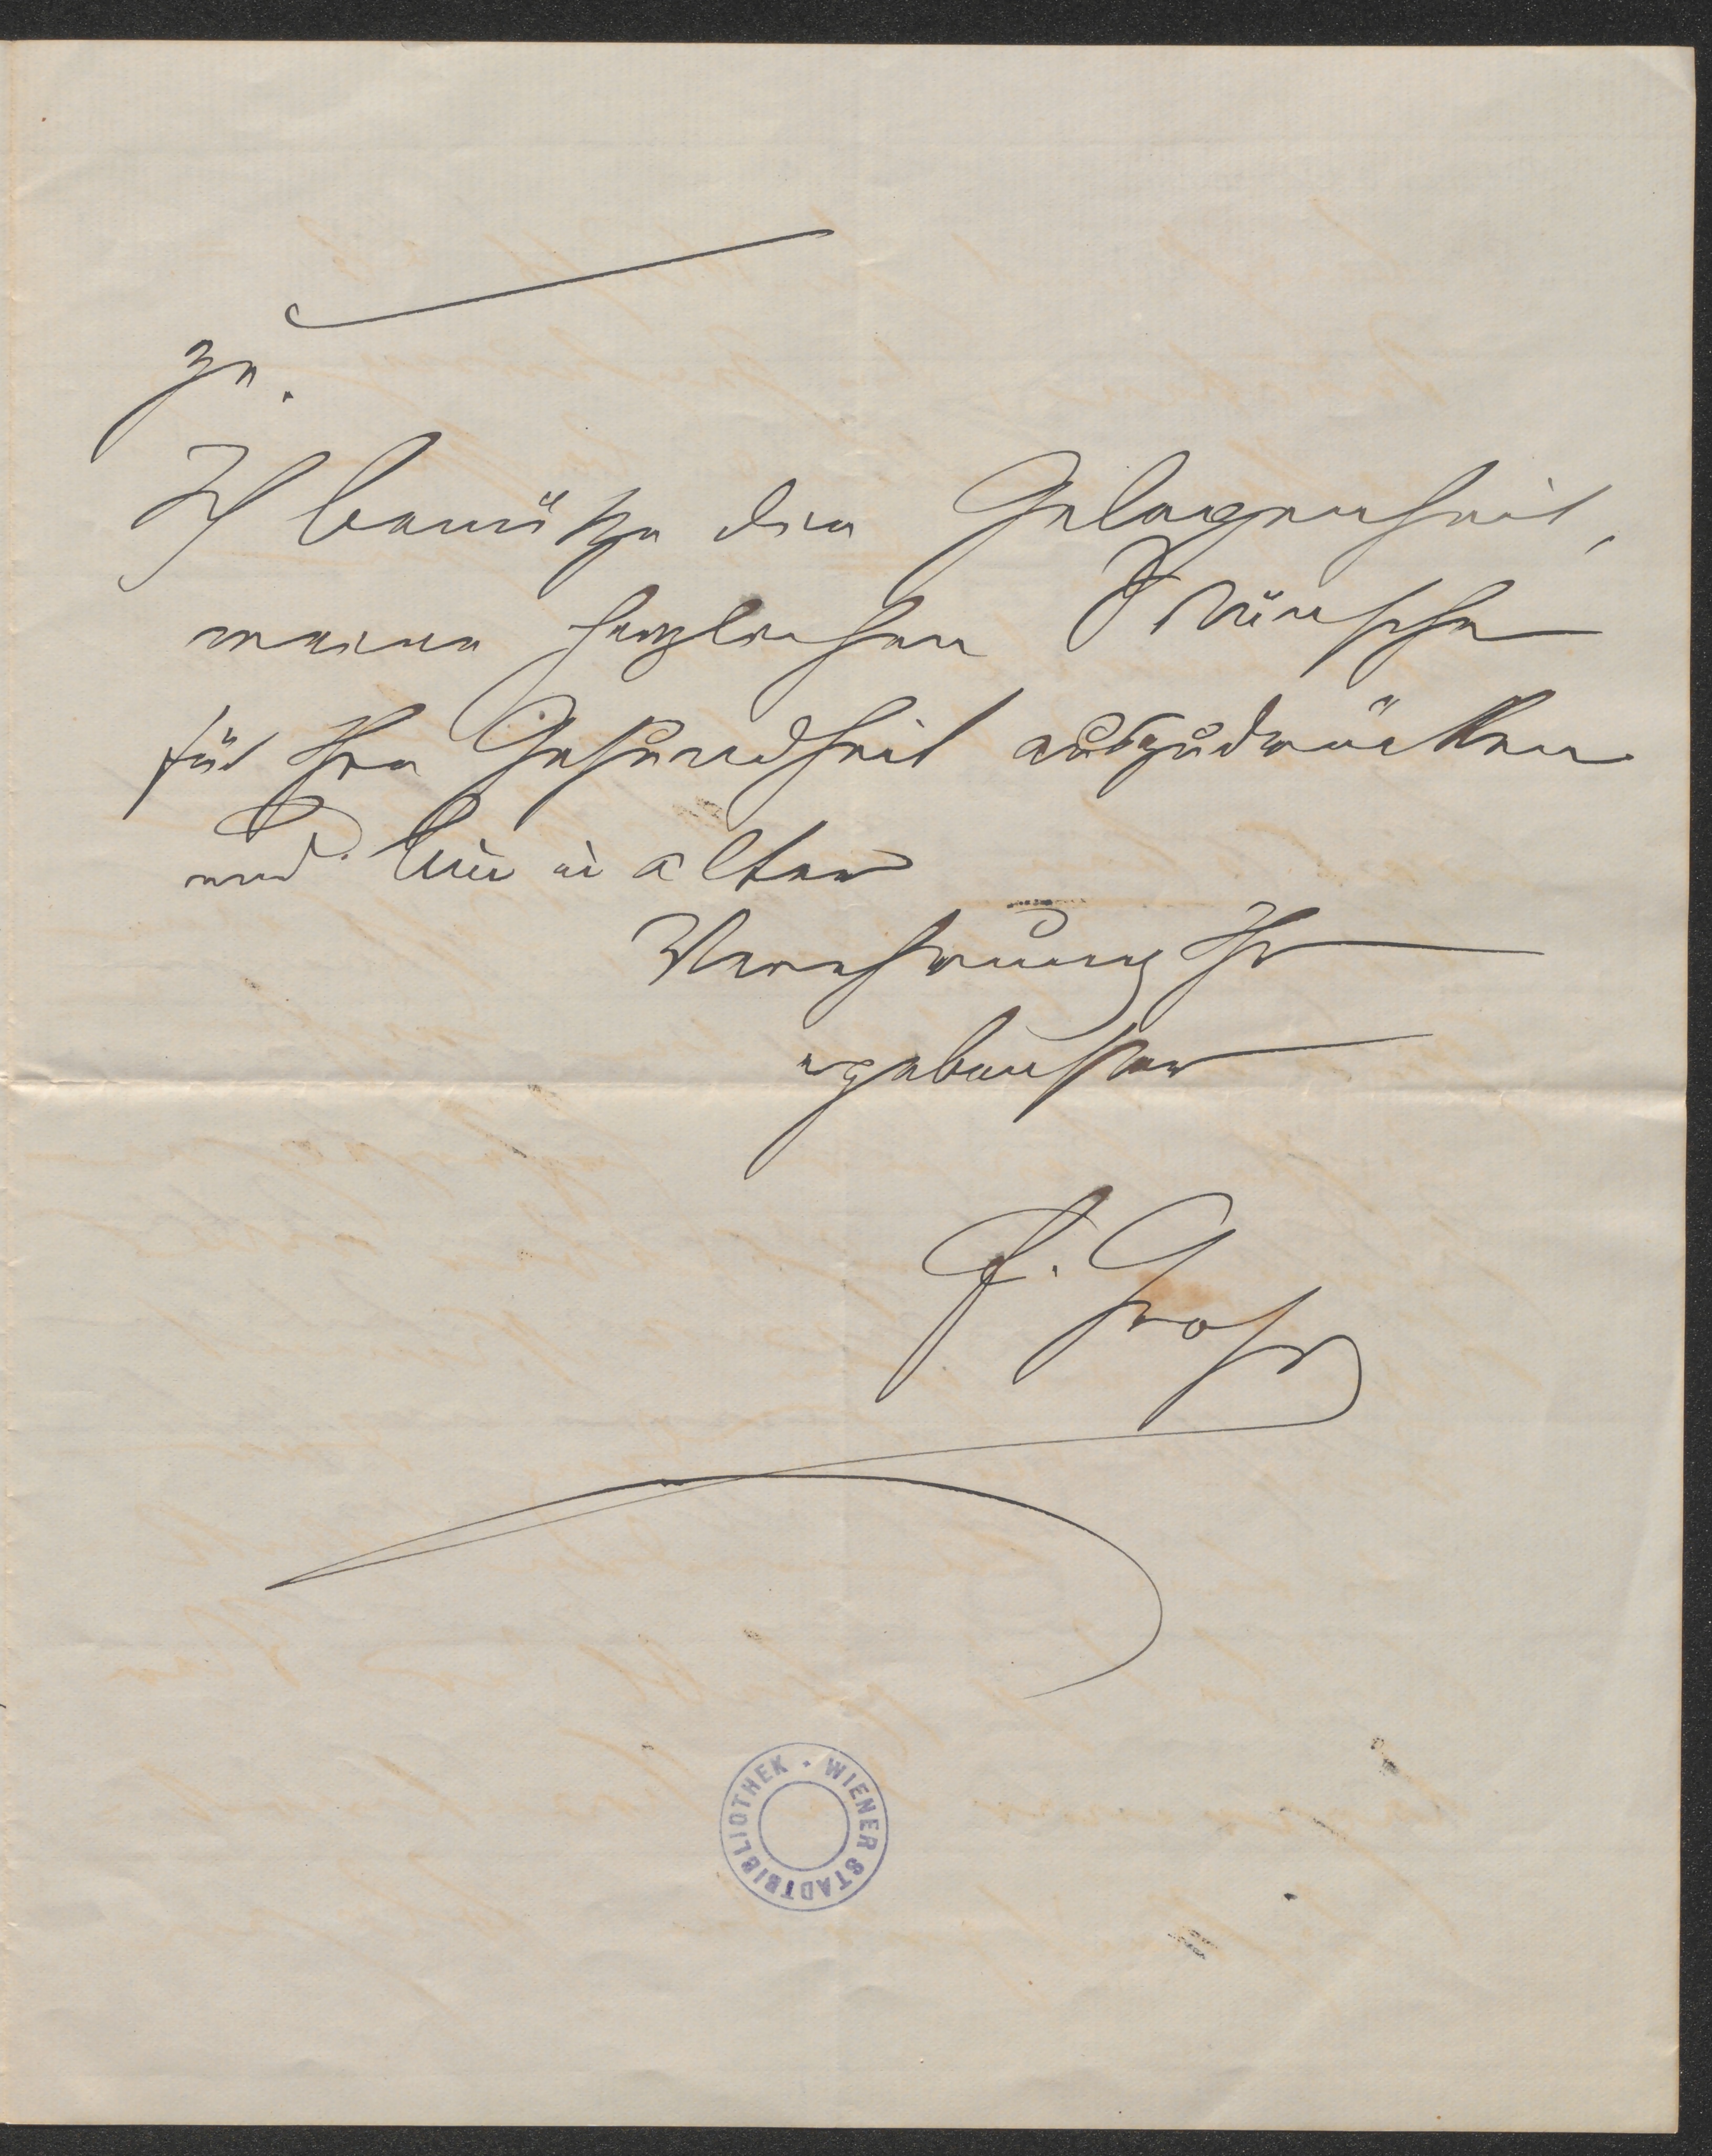 zu.
Ich benütze die Gelegenheit,
meine herzlichen Wünsche
für Ihre Gesundheit auszudrücken
und bin in alter
Verehrung Ihr
ergebenster
F. Groß
WIENER STADTBIBLIOTHEK